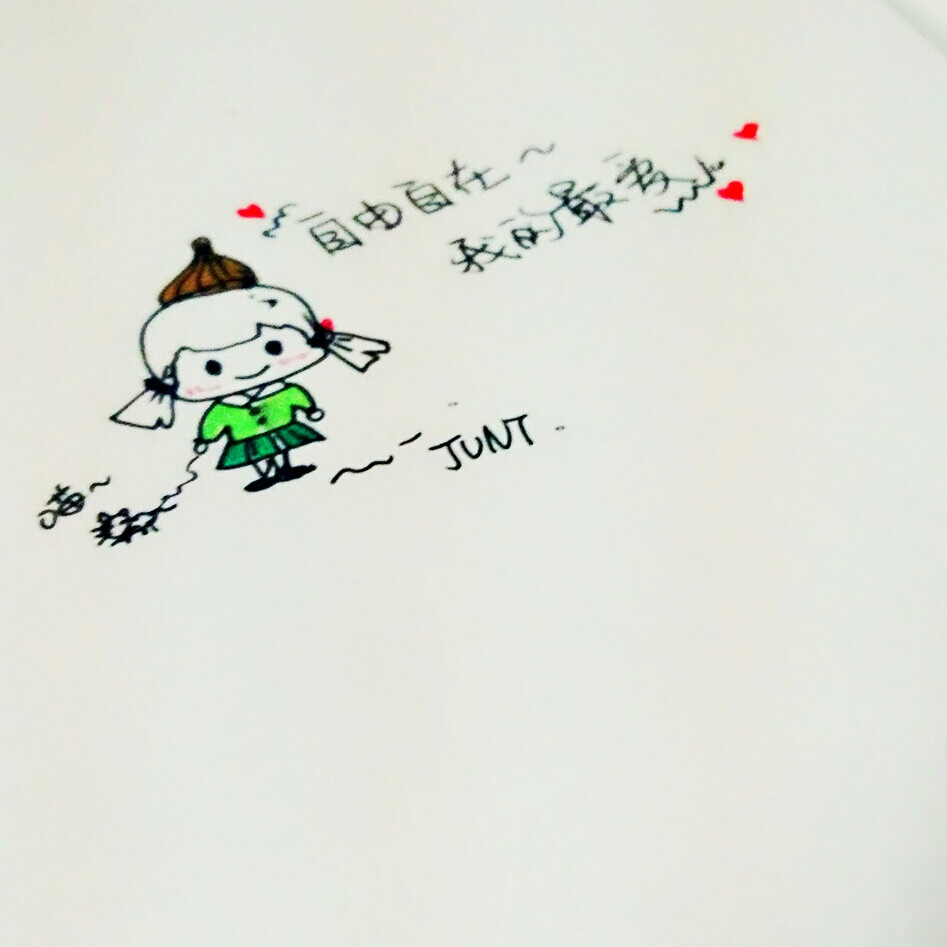 自由自在~
我的最爱
JUNT.
喵~